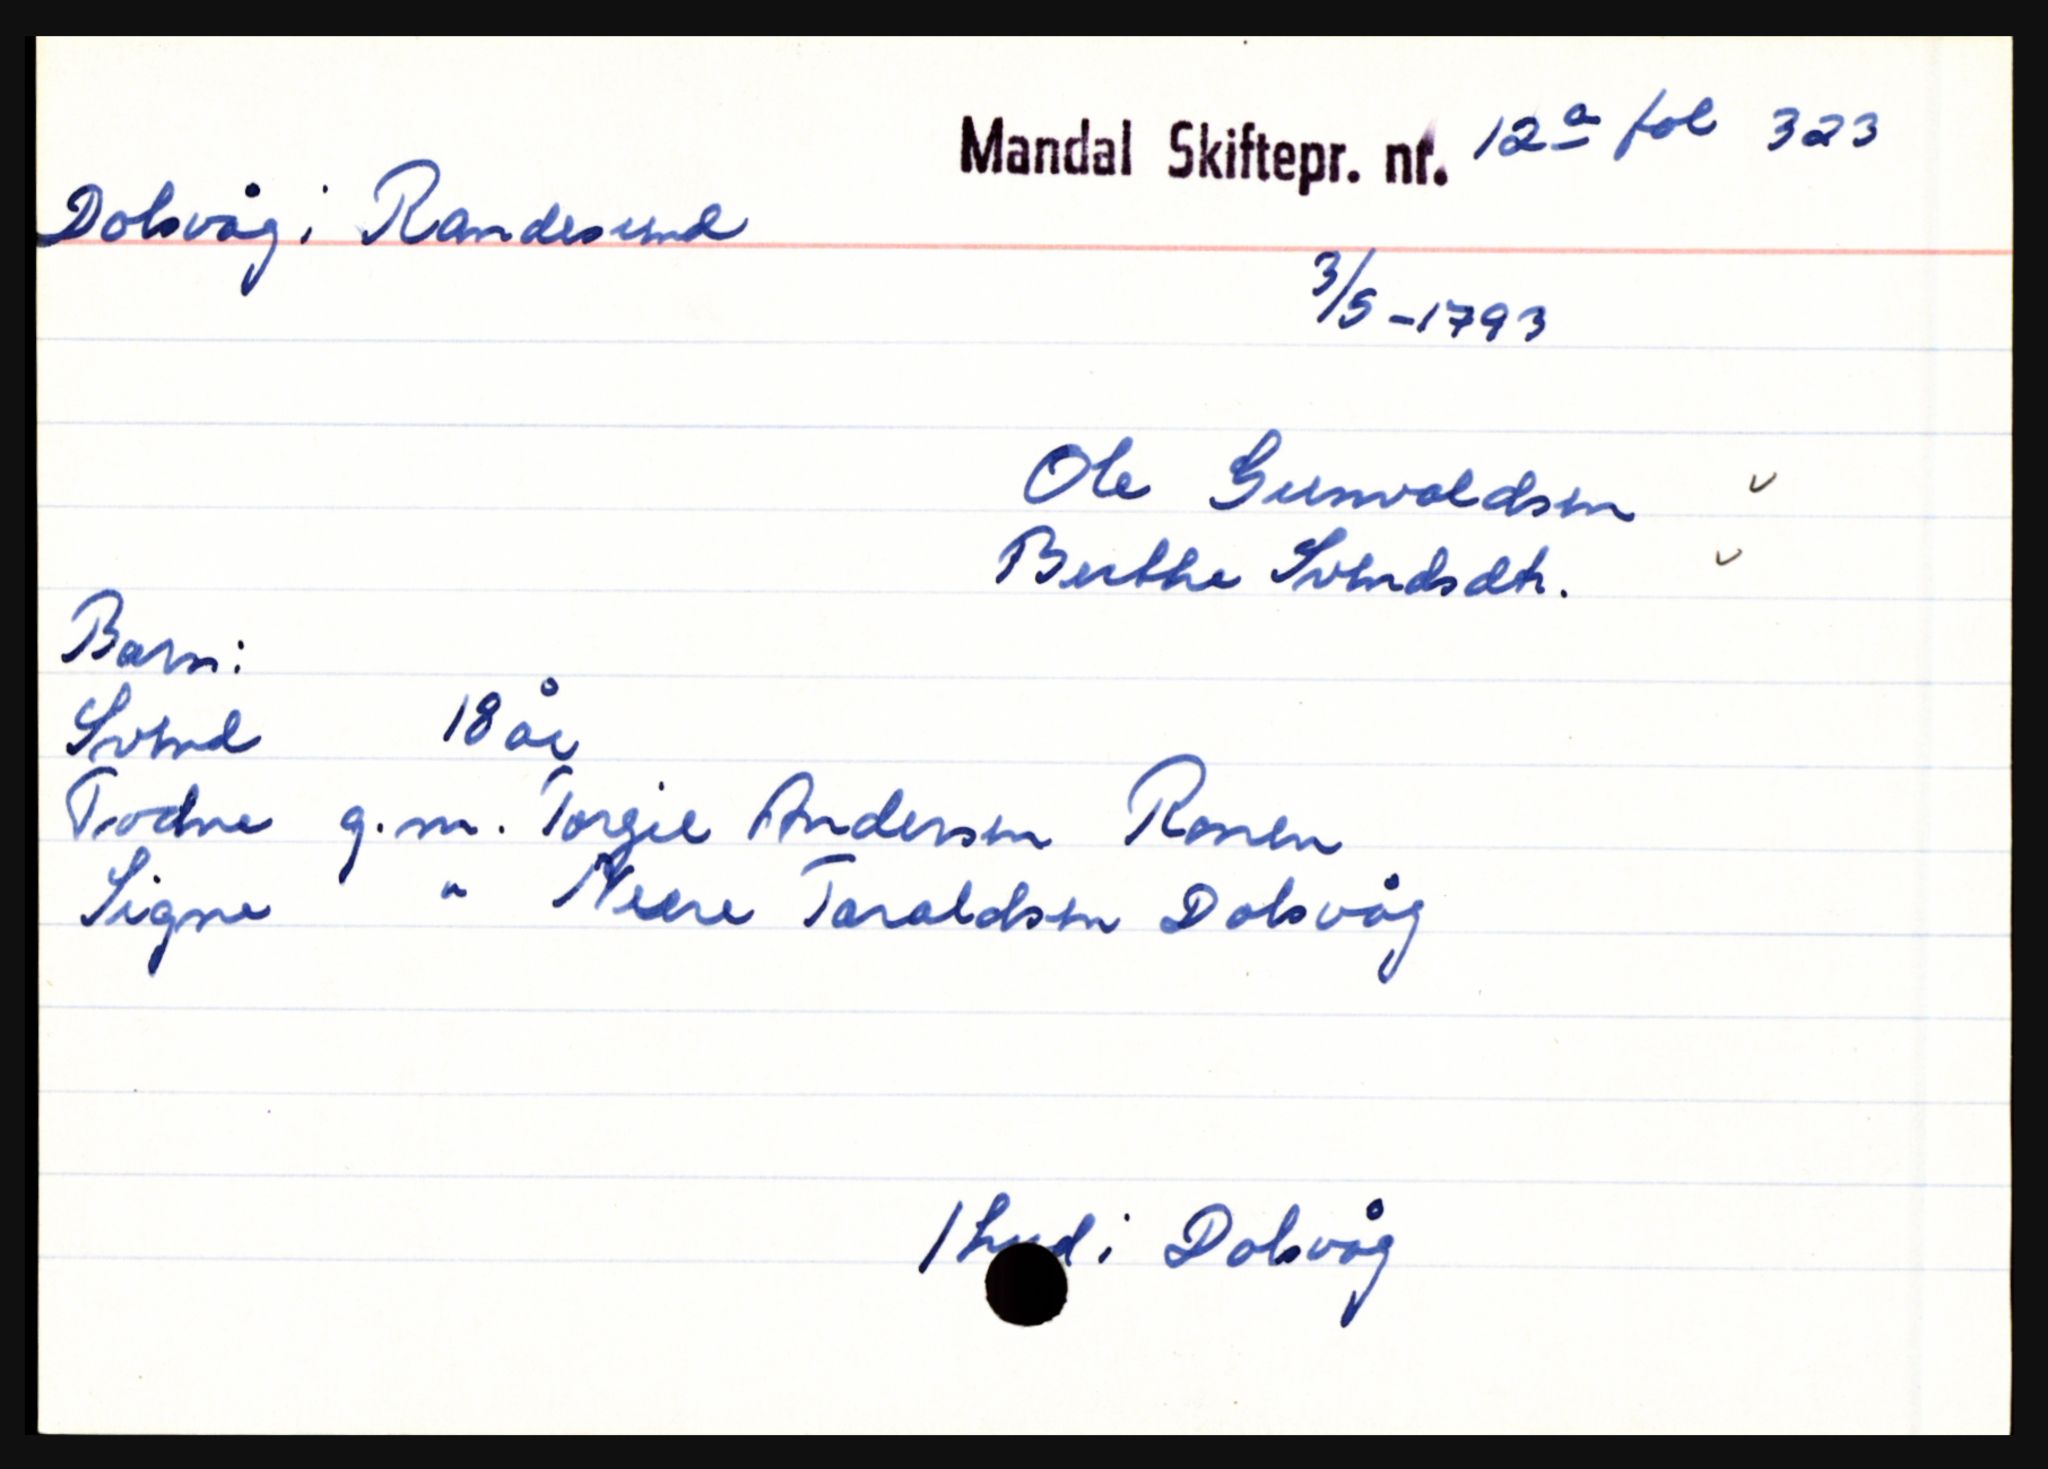 Mandal Skiftepr. nr. 12a fol 323
Dolsvåg i Randesund
3/5-1793
Ole Gunvaldsen
Berthe Svendsdtr.
Barn:
Svend 18 år
Todne g.m. Torgie Andersen Ronen
Signe " Neere Taraldsen Dolsvåg
1 hud i Dolsvåg